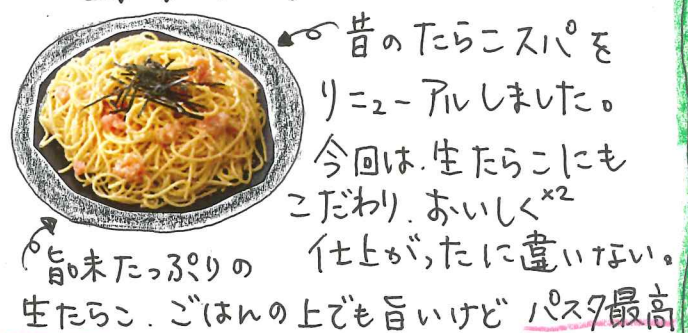 昔のたらこスパを
リニューアルしました。
今回は、生たらこにも
こだわり、おいしく×2
仕上がったに違いない。
旨味たっぷりの
生たらこ、ごはんの上でも旨いけど パスタ最高